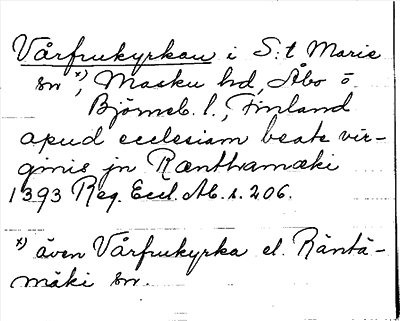 Vårfrukyrkan i S:t Marie
sn x), Masku hd, Åbo o
Björneb. l., Finland
apud ecclesiam beate vir-
ginis jn Rænthamæki
1393 Reg. Eccl. Ab. s. 206.
x) även Vårfrukyrka el. Räntä-
mäki sn.